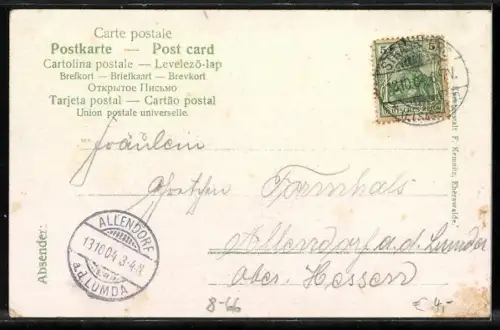 Carte postale
Postkarte — Post card
Cartolina postale — Levelező-lap
Brefkort — Briefkaart — Brevkort
Открытое Письмо
Tarjeta postal — Cartão postal
Union postale universelle.
5 5
Fräulein
Gretchen Formhals
Allendorf a.d. Lumda
Ober-Hessen
Absender:
ALLENDORF
13 10 04 3-4 N
a.d. LUMDA
F. Kemnitz, Eberswalde.
8-66
€ 4,-